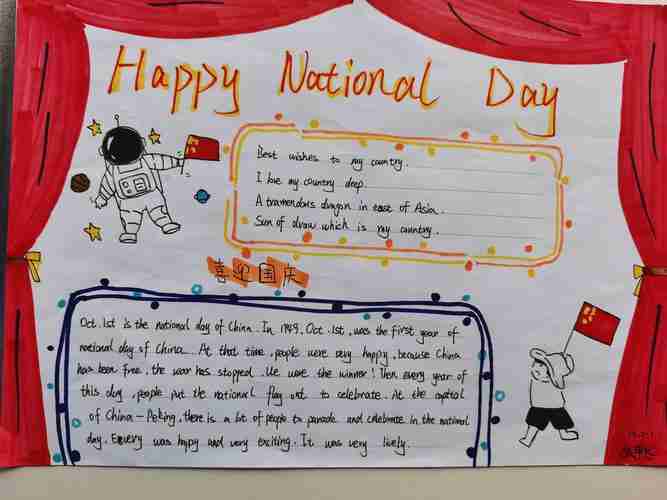 Happy National Day
Best wishes to my country.
I love my country deep.
A tramendous dragon in east of Asia.
Sun of draw which is my country.
喜迎国庆
Oct. 1st is the national day of China. In 1949, Oct. 1st, was the first year of
national day of China. At that time, people were very happy, because China
has been free, the war has stopped. We were the winner! Then every year of
this day, people put the national flag out to celebrate. At the capital
of China - Peking, there is a lot of people to parade and celebrate in the national
day. Envery was happy and very exciting. It was very lively.